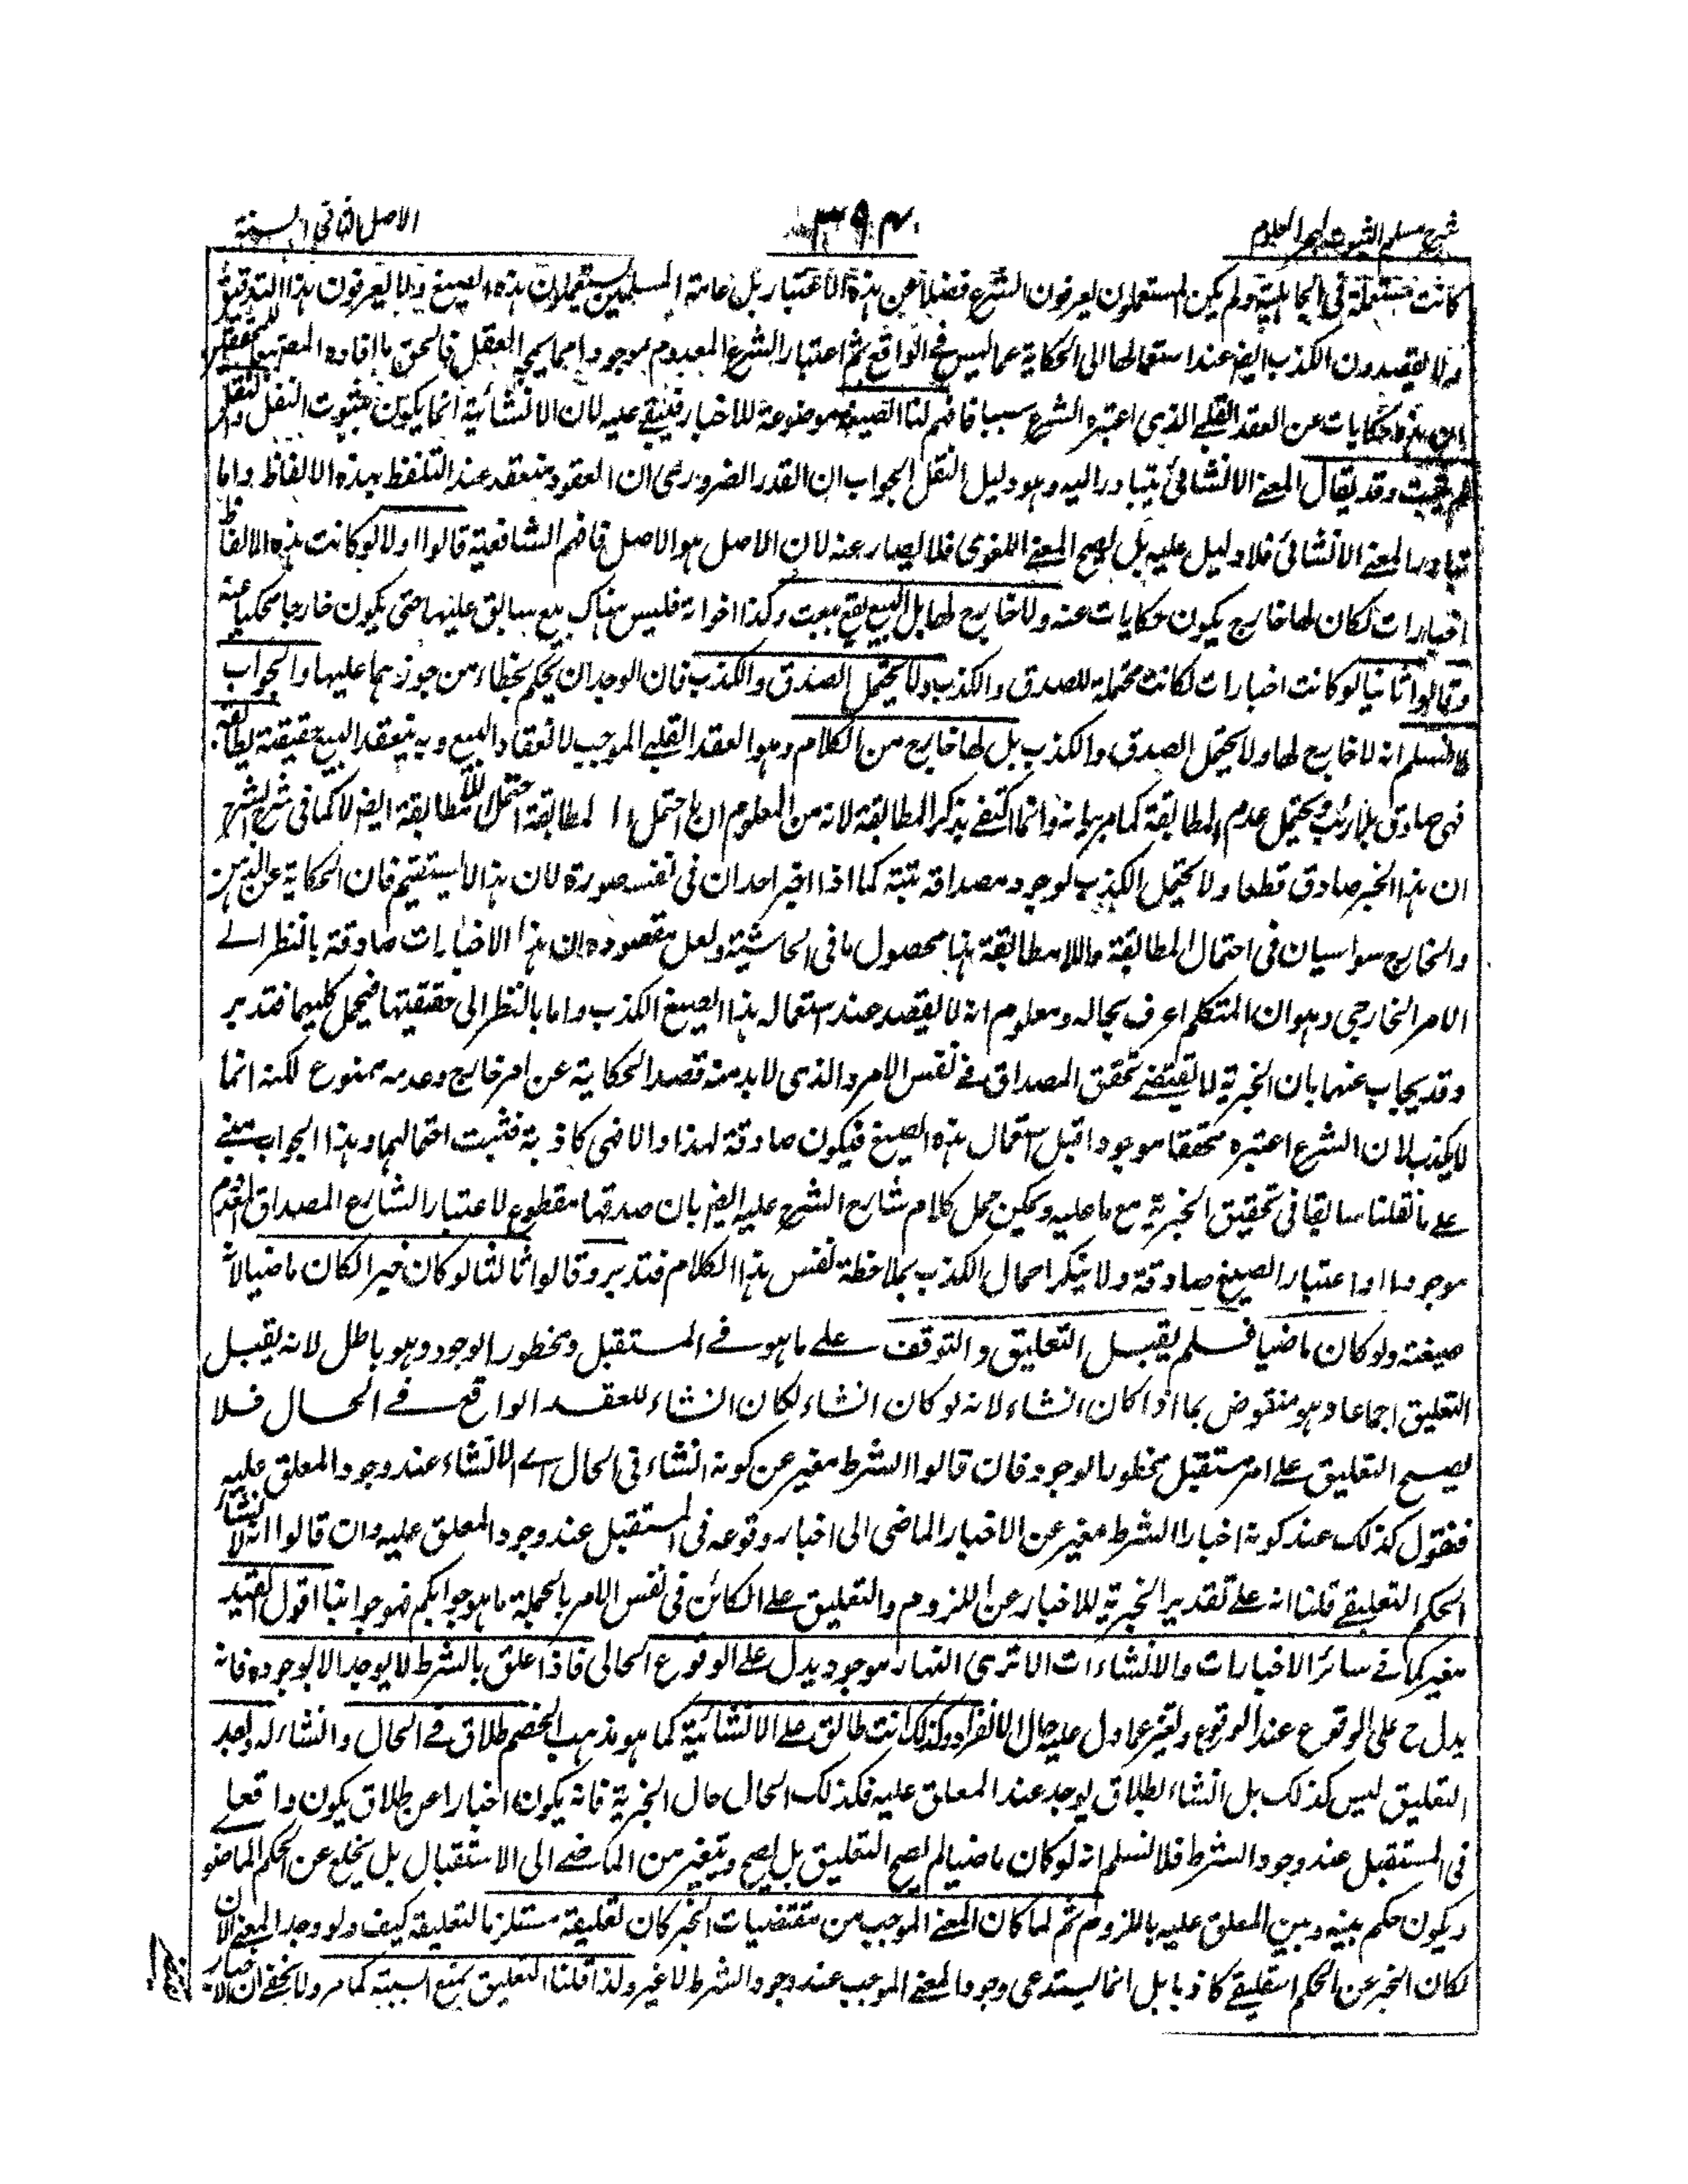 شرح مسلم الثبوت لبحر العلوم
٣٩٤
الاصل الثانى السنة
كانت مستعملة فى الجاهلية ولم يكن المستعملون يعرفون الشرع فضلا عن هذه الاعتبار بل عامة المسلمين يستعملون هذه الصيغ ولا يعرفون هذا التدقيق
ولا يقصدون الكذب ايضا عند استعمالها الى الحكاية عما ليس فى الواقع ثم اعتبار الشرع المعدوم موجودا مما يحيله العقل فالحق ما افاده المص
ان هذه حكايات عن العقد القلبى الذى اعتبره الشرع سببا فافهم لنا الصيغ موضوعة للاخبار فيبقى عليه لان الانشائية انما يكون بثبوت النقل والنقل
لم يثبت وقد يقال المعنى الانشائى يتبادر اليه وهو دليل النقل الجواب ان القدر الضرورى ان العقود منعقد عند التلفظ بهذه الالفاظ واما
تبادر المعنى الانشائى فلا دليل عليه بل يصح المعنى اللغوى فلا يصار عنه لان الاصل هو الاصل فافهم الشافعية قالوا اولا لو كانت هذه الالفاظ
اخبارات لكان لها خارج يكون حكايات عنه ولا خارج لها بل البيع يقع ببعت وكذا اخواته فليس هناك بيع سابق عليها حتى يكون خارجا محكيا عنه
وقالوا ثانيا لو كانت اخبارات لكانت محتملة للصدق والكذب ولا يحتمل الصدق والكذب فان الوجدان يحكم بخطاء من جوزهما عليها والجواب
لا نسلم انه لا خارج لها ولا يحتمل الصدق والكذب بل لها خارج من الكلام وهو العقد القلبى الموجب لانعقاد البيع وبه ينعقد البيع حقيقة
فهى صادق بلا ريب ويحتمل عدم المطابقة كما مر بيانه وانما اكتفى بذكر المطابقة لانه من المعلوم ان ما احتمل المطابقة احتمل اللا مطابقة ايضا لا كما فى شرح الشرح
ان هذا الخبر صادق قطعا ولا يحتمل الكذب لوجود مصداقه بتة كما اذا اخبر احد ان فى نفسه صورة لان هذا لا يستقيم فان الحكاية عن الذهن
والخارج سواسيان فى احتمال المطابقة واللا مطابقة هذا محصول ما فى الحاشية ولعل مقصوده ان هذا الاخبارات صادقة بالنظر الى
الامر الخارجى وهو ان المتكلم اعرف بحاله ومعلوم انه لا يقصد عند استعماله هذا الصيغ الكذب واما بالنظر الى حقيقتها فيحمل كليهما فتدبر
وقد يجاب عنها بان الخبرية لا تقتضى تحقق المصداق فى نفس الامر والذى لا بد منه قصد الحكاية عن امر خارج وعدمه ممنوع لكنه انما
لا يكذب لان الشرع اعتبره متحققا موجودا قبل استعمال هذه الصيغ فيكون صادقة لهذا والا فهى كاذبة فثبت احتمالهما وهذا الجواب يبتنى
على ما نقلنا سابقا فى تحقيق الخبرية مع ما عليه ويمكن حمل كلام شارح الشرح عليه ايضا بان صدقها مقطوع لاعتبار الشارع المصداق
موجودا او اعتبار الصيغ صادقة ولا ينكر احتمال الكذب بملاحظة نفس هذا الكلام فتدبر وقالوا ثالثا لو كان خبرا لكان ماضيا لانه
صيغته ولو كان ماضيا فلم يقبل التعليق والتوقف على ما هو فى المستقبل ومخطور الوجود وهو باطل لانه يقبل
التعليق اجماعا وهو منقوض بما اذا كان انشاء لانه لو كان انشاء لكان انشاء للعقد الواقع فى الحال فلا
يصح التعليق على امر مستقبل مخطور الوجود فان قالوا الشرط مغير عن كونه انشاء فى الحال الى الانشاء عند وجود المعلق عليه
فنقول كذلك عند كونه اخبارا الشرط مغير عن الاخبار الماضى الى اخبار وقوعه فى المستقبل عند وجود المعلق عليه وان قالوا انه لانشاء
الحكم التعليقى قلنا انه على تقدير الخبرية للاخبار عن اللزوم والتعليق على الكائن فى نفس الامر بالجملة ما هو جوابكم فهو جوابنا اقول التقييد
مغير كما فى سائر الاخبارات والانشاءات الا ترى النهار موجود يدل على الوقوع الحالى فاذا علق بالشرط لا يوجد الا بوجوده فانه
يدل ح على الوقوع عند الوقوع وتغير عما دل عليه حال الانفراد وكذلك انت طالق على الانشائية كما هو مذهب الخصم طلاق فى الحال وانشاء له وبعد
التعليق ليس كذلك بل انشاء لطلاق يوجد عند المعلق عليه فكذلك الحال حال الخبرية فانه يكون اخبارا عن طلاق يكون واقعا
فى المستقبل عند وجود الشرط فلا نسلم انه لو كان ماضيا لم يصح التعليق بل يصح ويتغير من الماضى الى الاستقبال بل يخلع عن الحكم الماضوى
ويكون حكم بينه وبين المعلق عليه باللزوم ثم لما كان المعنى الموجب من مقتضيات الخبر كان تعليقه مستلزما لتعليقه كيف ولو وجد المعنى الان
لكان الخبر عن الحكم التعليقى كاذبا بل انما يستدعى وجود المعنى الموجب عند وجود الشرط لا غير ولذا قلنا التعليق يمنع السببية كما مر ولا يخفى ان الاخبار